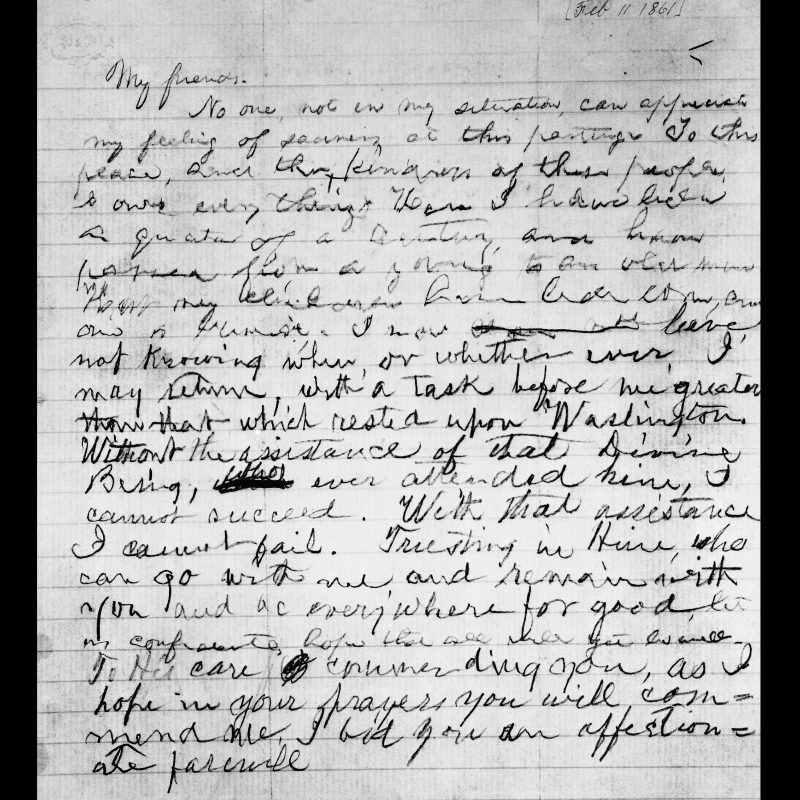 [Feb 11 1861]
My friends.
No one, not in my situation, can appreciate
my feeling of sadness at this parting. To this
place, and the kindness of these people,
I owe every thing. Here I have been
a quarter of a century, and have
passed from a young to an old man
Here my children have been born, and
one is buried. I now leave,
not knowing when, or whether ever, I
may return, with a task before me greater
than that which rested upon Washington.
Without the assistance of that Divine
Being, who ever attended him, I
cannot succeed. With that assistance
I cannot fail. Trusting in Him, who
can go with me and remain with
you and be everywhere for good, let
us confidently hope that all will yet be well.
To His care commending you, as I
hope in your prayers you will com=
mend me, I bid you an affection=
ate farewell